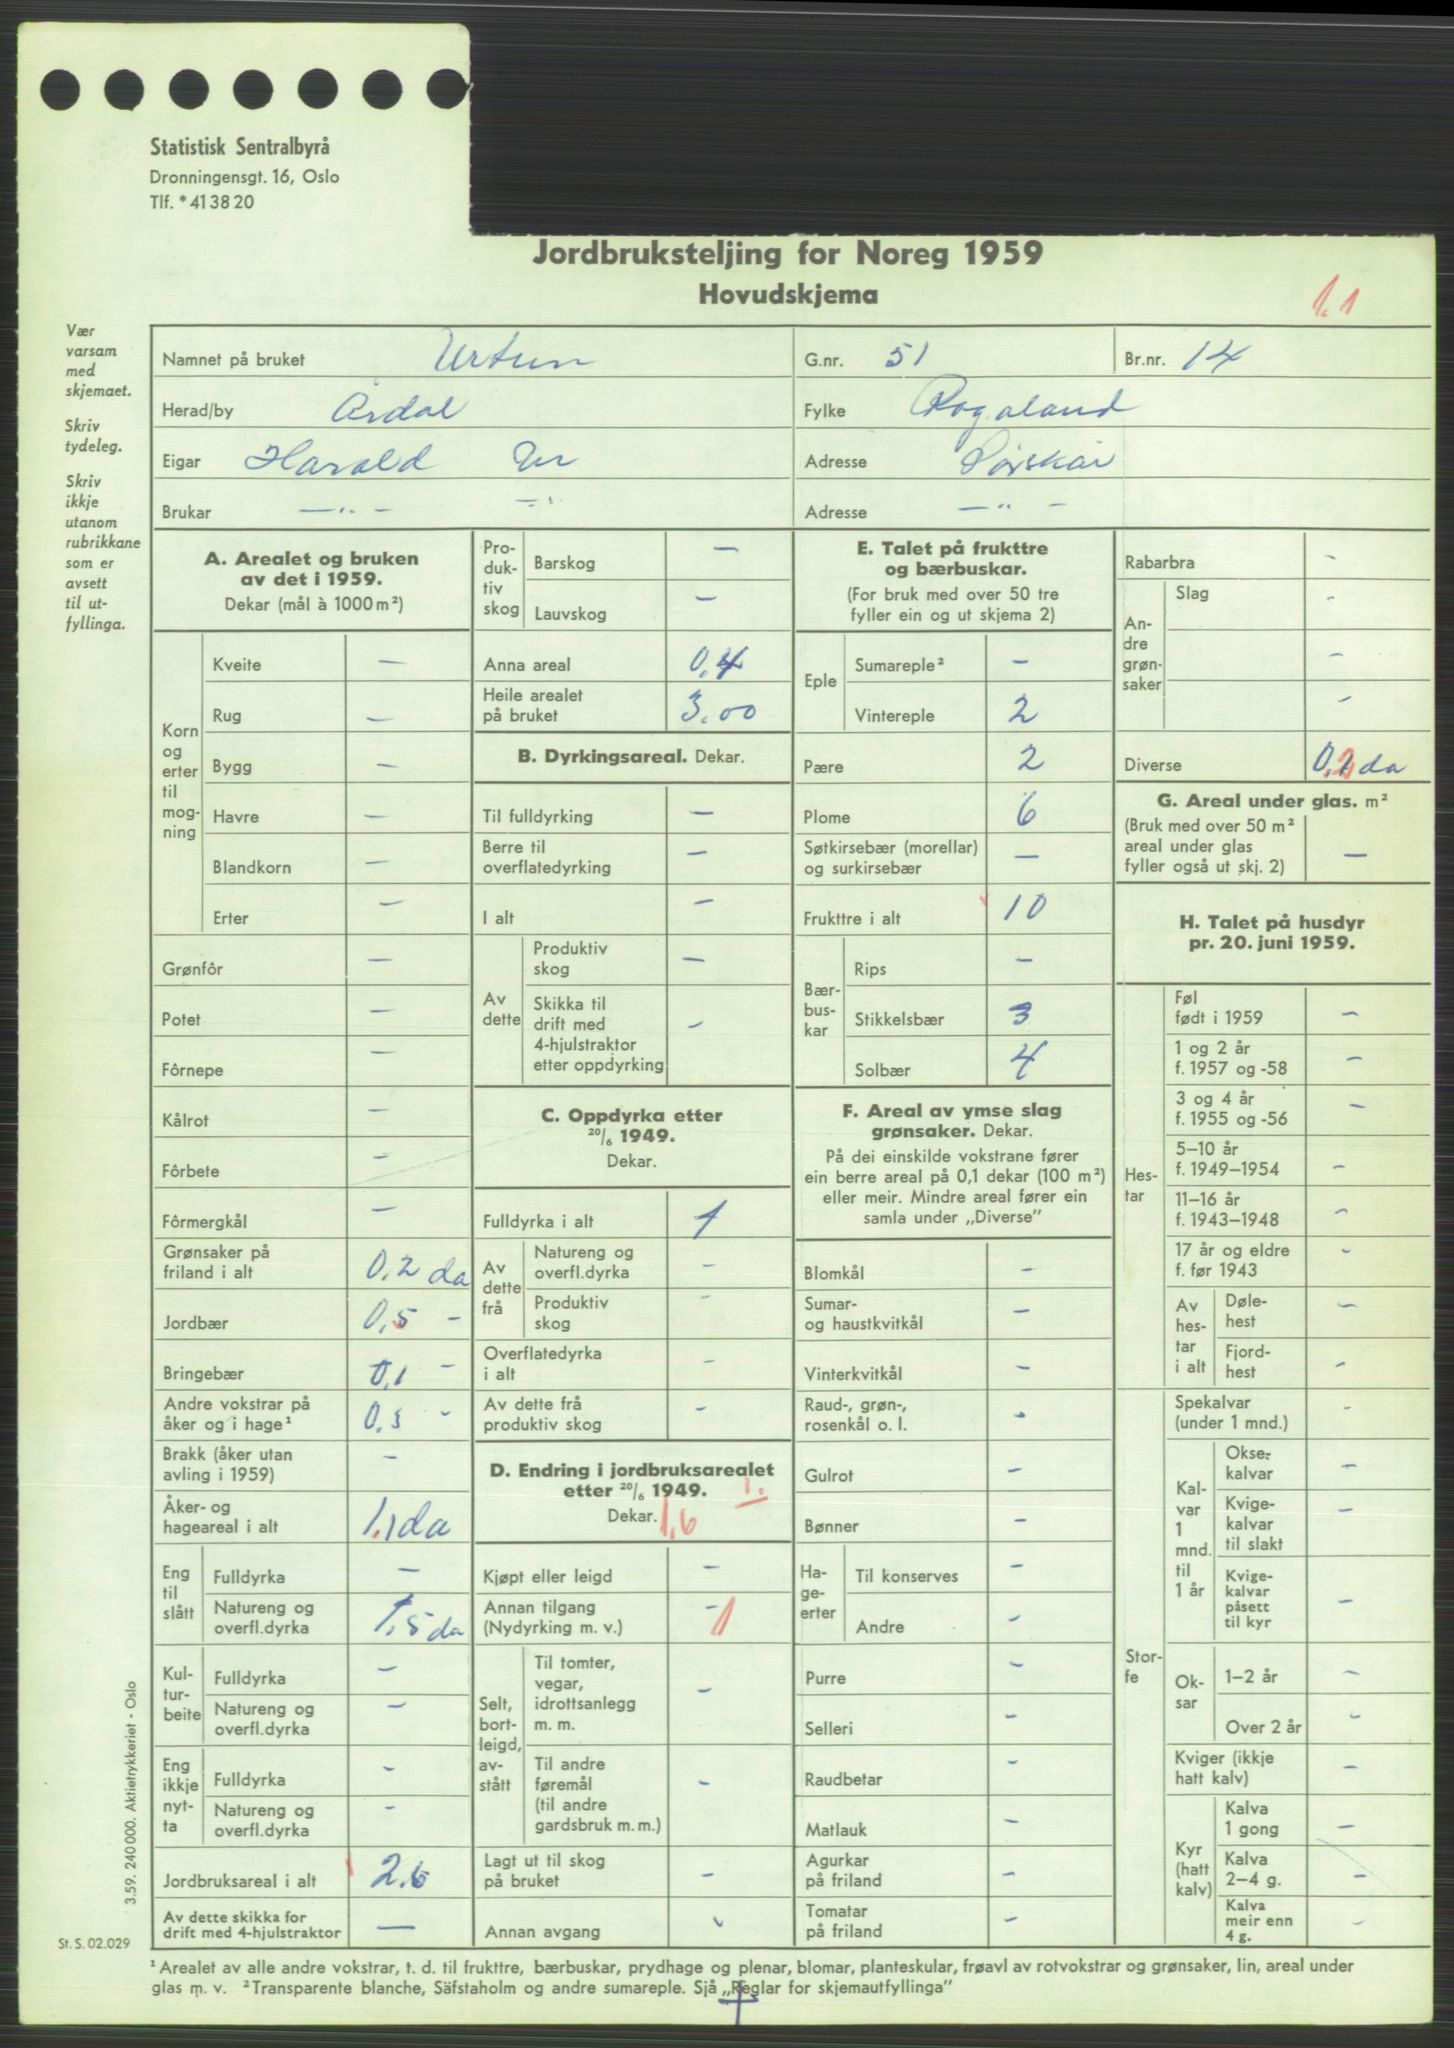 Statistisk Sentralbyrå
Dronningensgt. 16, Oslo
Tlf. * 41 38 20
Jordbruksteljing for Noreg 1959
Hovudskjema
1.1
Vær
varsam
med
skjemaet.
Skriv
tydeleg.
Skriv
ikkje
utanom
rubrikkane
som er
avsett
til ut-
fyllinga.
Namnet på bruket Urtun
G.nr. 51
Br.nr. 14
Herad/by Årdal
Fylke Rogaland
Eigar Harald Ur
Adresse
Brukar — " — — " —
Adresse — " —
A. Arealet og bruken
av det i 1959.
Dekar (mål à 1000 m²)
Korn
og
erter
til
mog-
ning
Kveite —
Rug —
Bygg —
Havre —
Blandkorn —
Erter —
Grønfôr —
Potet —
Fôrnepe —
Kålrot —
Fôrbete —
Fôrmergkål —
Grønsaker på
friland i alt 0,2 da
Jordbær 0,5 -
Bringebær 0,1 -
Andre vokstrar på
åker og i hage¹ 0,3 -
Brakk (åker utan
avling i 1959) -
Åker- og
hageareal i alt 1,1 da
Eng
til
slått
Fulldyrka —
Natureng og
overfl.dyrka 1,5 da
Kul-
tur-
beite
Fulldyrka —
Natureng og
overfl.dyrka —
Eng
ikkje
nyt-
ta
Fulldyrka -
Natureng og
overfl.dyrka -
Jordbruksareal i alt 2,6
Av dette skikka for
drift med 4-hjulstraktor —
Pro-
duk-
tiv
skog
Barskog —
Lauvskog —
Anna areal 0,4
Heile arealet
på bruket 3.00
B. Dyrkingsareal. Dekar.
Til fulldyrking —
Berre til
overflatedyrking —
I alt —
Av
dette
Produktiv
skog —
Skikka til
drift med
4-hjulstraktor
etter oppdyrking -
C. Oppdyrka etter
20/6 1949.
Dekar.
Fulldyrka i alt 1
Av
dette
frå
Natureng og
overfl.dyrka -
Produktiv
skog -
Overflatedyrka
i alt -
Av dette frå
produktiv skog -
D. Endring i jordbruksarealet
etter 20/6 1949. 1.
Dekar. 1,6
Kjøpt eller leigd —
Annan tilgang
(Nydyrking m. v.) — 1
Selt,
bort-
leigd,
av-
stått
Til tomter,
vegar,
idrottsanlegg
m. m. -
Til andre
føremål
(til andre
gardsbruk m. m.) -
Lagt ut til skog
på bruket -
Annan avgang -
E. Talet på frukttre
og bærbuskar.
(For bruk med over 50 tre
fyller ein og ut skjema 2)
Eple
Sumareple² —
Vintereple 2
Pære 2
Plome 6
Søtkirsebær (morellar)
og surkirsebær —
Frukttre i alt 10
Bær-
bus-
kar
Rips —
Stikkelsbær 3
Solbær 4
F. Areal av ymse slag
grønsaker. Dekar.
På dei einskilde vokstrane fører
ein berre areal på 0,1 dekar (100 m²)
eller meir. Mindre areal fører ein
samla under „Diverse”
Blomkål -
Sumar-
og haustkvitkål -
Vinterkvitkål -
Raud-, grøn-,
rosenkål o. l. -
Gulrot -
Bønner -
Ha-
ge-
erter
Til konserves -
Andre -
Purre -
Selleri -
Raudbetar -
Matlauk -
Agurkar
på friland -
Tomatar
på friland -
Rabarbra -
An-
dre
grøn-
saker
Slag -
-
-
Diverse 0,2 da
G. Areal under glas. m²
(Bruk med over 50 m²
areal under glas
fyller også ut skj. 2) —
H. Talet på husdyr
pr. 20. juni 1959.
Hes-
tar
Føl
født i 1959 -
1 og 2 år
f. 1957 og -58 -
3 og 4 år
f. 1955 og -56 -
5–10 år
f. 1949–1954 -
11–16 år
f. 1943–1948 -
17 år og eldre
f. før 1943 -
Av
hes-
tar
i alt
Døle-
hest -
Fjord-
hest -
Stor-
fe
Spekalvar
(under 1 mnd.) -
Kal-
var
1
mnd.
til
1 år
Okse-
kalvar -
Kvige-
kalvar
til slakt -
Kvige-
kalvar
påsett
til kyr -
Ok-
sar
1–2 år -
Over 2 år -
Kviger (ikkje
hatt kalv) -
Kyr
(hatt
kalv)
Kalva
1 gong -
Kalva
2–4 g. -
Kalva
meir enn
4 g. -
3.59. 240 000. Aktietrykkeriet - Oslo
St. S. 02.029
¹ Arealet av alle andre vokstrar, t. d. til frukttre, bærbuskar, prydhage og plenar, blomar, planteskular, frøavl av rotvokstrar og grønsaker, lin, areal under
glas m. v. ² Transparente blanche, Säfstaholm og andre sumareple. Sjå „Reglar for skjemautfyllinga”